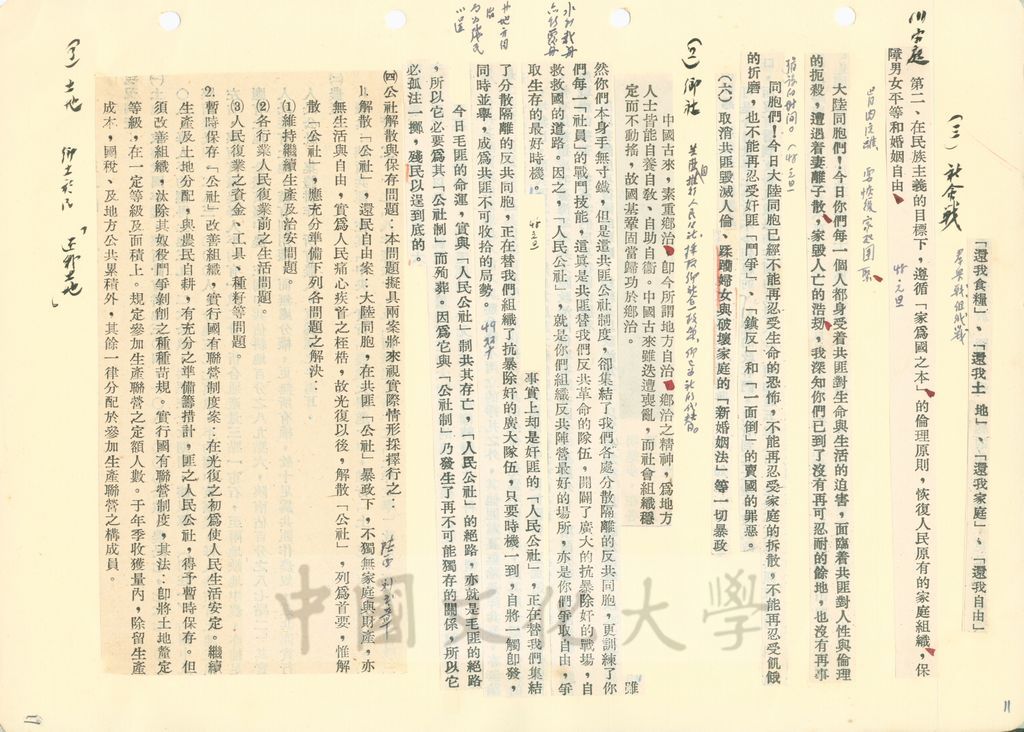 (三) 社會戰
「還我食糧」、「還我土 地」、「還我家庭」、「還我自由」
川家庭
第二、在民族主義的目標下，遵循「家爲國之本」的倫理原則，恢復人民原有的家庭組織，保
障男女平等和婚姻自由、
四八、元旦
大陸同胞們！今日你們每一個人都身受着共匪對生命與生活的迫害，面臨着共匪對人性與倫理
的扼殺，遭遇着妻離子散、家毀人亡的浩劫，我深知你們已到了沒有再可忍耐的餘地，也沒有再事
同胞們！今日大陸同胞已經不能再忍受生命的恐怖，不能再忍受家庭的拆散，不能再忍受飢餓
的折磨，也不能再忍受奸匪「鬥爭」、「鎮反」和「一面倒」的賣國的罪惡。
(六) 取消共匪毀滅人倫、蹂躪婦女與破壞家庭的「新婚姻法」等一切暴政
(二) 鄉社
中國古來，素重鄉治，卽今所謂地方自治，鄉治之精神，爲地方
人士皆能自養自敎、自助自衞。中國古來雖迭遭喪亂，而社會組織穩
定而不動搖，故國基鞏固當歸功於鄉治。
雖
然你們本身手無寸鐵，但是這共匪公社制度，卻集結了我們各處分散隔離的反共同胞，更訓練了你
們每一「社員」的戰鬥技能，這眞是共匪替我們反共革命的隊伍，開闢了廣大的抗暴除奸的戰場，自
救救國的道路。因之，「人民公社」，就是你們組織反共陣營最好的場所，亦是你們爭取自由，爭
取生存的最好時機。
事實上却是奸匪的「人民公社」，正在替我們集結
了分散隔離的反共同胞，正在替我們組織了抗暴除奸的廣大隊伍，只要時機一到，自將一觸卽發，
同時並舉，成爲共匪不可收拾的局勢。
今日毛匪的命運，實與「人民公社」制共其存亡，「人民公社」的絕路，亦就是毛匪的絕路
，所以它必要爲其「公社制」而殉葬。因爲它與「公社制」乃發生了再不可能獨存的關係，所以它
必孤注一擲，殘民以逞到底的。
㈣公社解散與保存問題：本問題擬具兩案將來視實際情形採擇行之：
1.解散「公社」，還民自由案：大陸同胞，在共匪「公社」暴政下，不獨無家庭與財產，亦
無生活與自由，實爲人民痛心疾首之桎梏，故光復以後，解散「公社」，列爲首要，惟解
散「公社」，應充分準備下列各問題之解決：
(1)維持繼續生產及治安問題。
(2)各行業人民復業前之生活問題。
(3)人民復業之資金、工具、種籽等問題。
2.暫時保存「公社」改善組織，實行國有聯營制度案：在光復之初爲使人民生活安定。繼續
生產及土地分配，與農民自耕，有充分之準備籌措計，匪之人民公社，得予暫時保存。但
須改善組織，汰除其奴役鬥爭剝削之種種苛規。實行國有聯營制度，其法：卽將土地釐定
等級，在一定等級及面積上。規定參加生產聯營之定額人數。于年季收獲量內，除留生產
成本，國稅、及地方公共累積外，其餘一律分配於參加生產聯營之構成員。
(三) 土地
11
中國文化大學